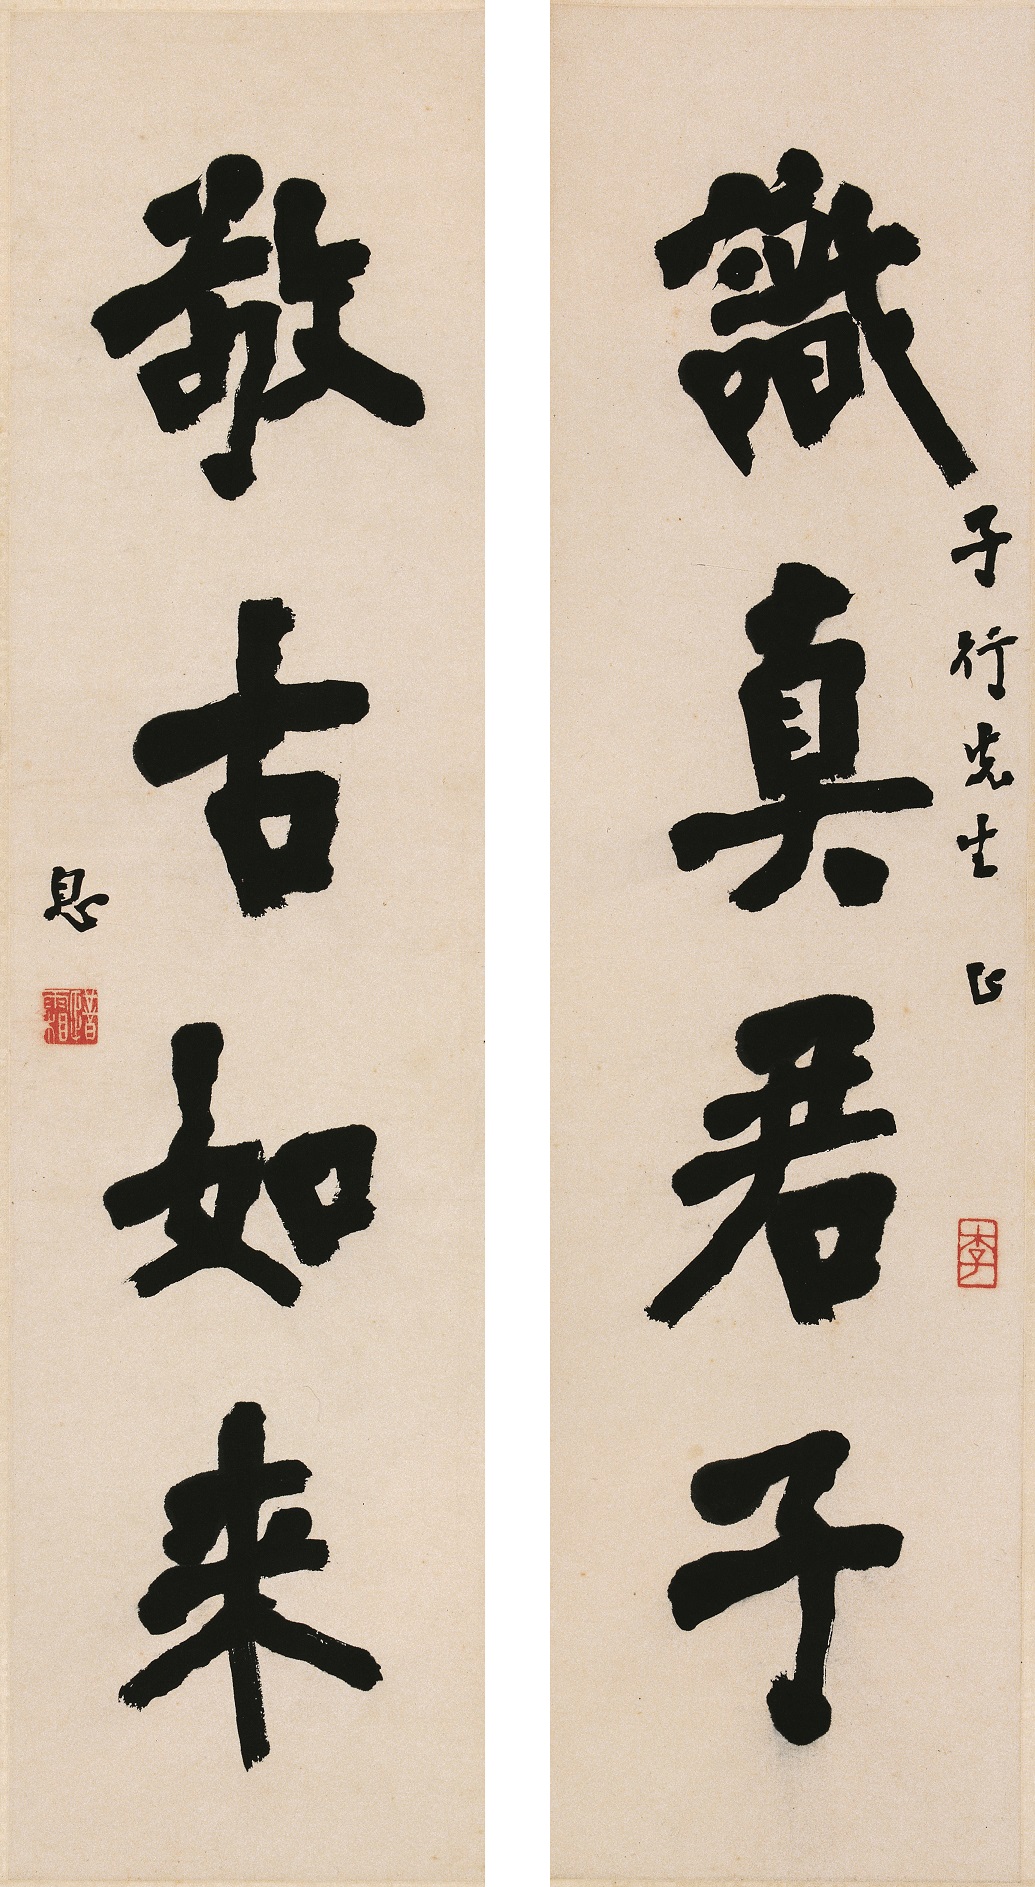 識真君子
子行先生 正
李
敬古如来
息